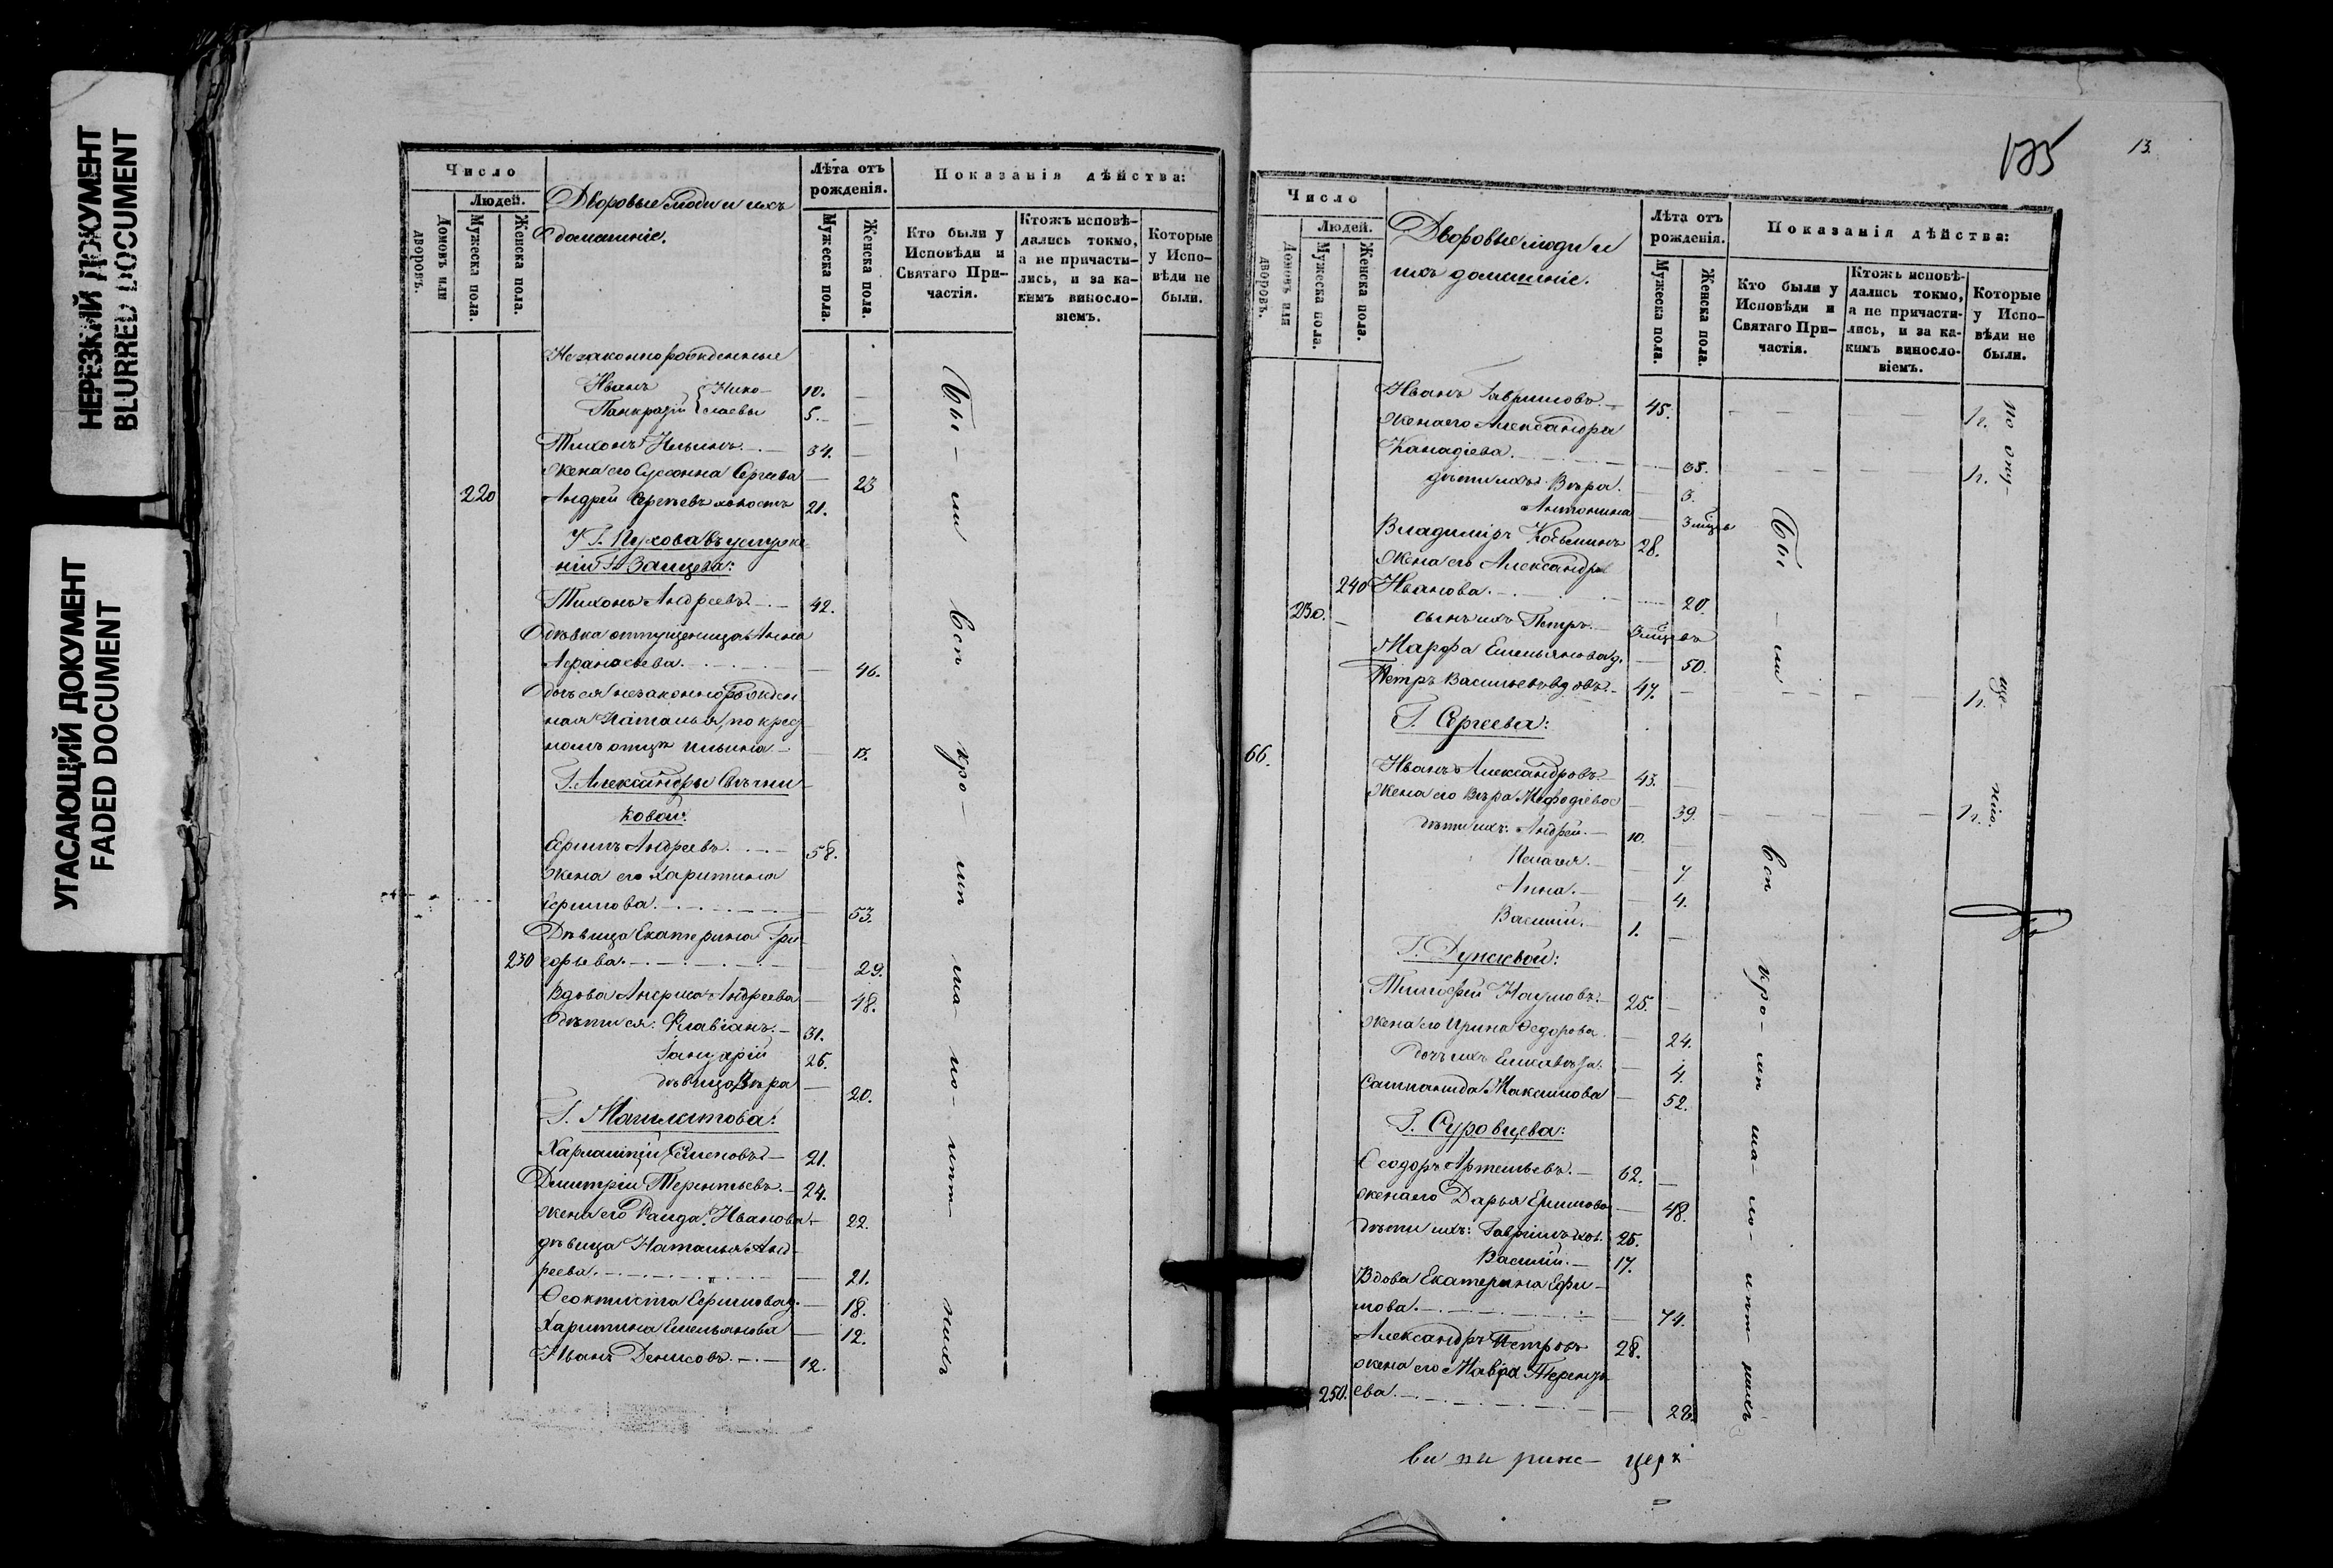 НЕРЕЗКИЙ ДОКУМЕНТ
BLURRED DOCUMENT
УГАСАЮЩИЙ ДОКУМЕНТ
FADED DOCUMENT
Число
Людей.
Домовъ или дворовъ.
Мужеска пола.
Женска пола.
Дворовые люди и ихъ
домашніе.
Лѣта отъ
рожденія.
Мужеска пола.
Женска пола.
Показанія дѣйства:
Кто были у
Исповѣди и
Святаго При-
частія.
Ктожъ исповѣ-
дались токмо,
а не причасти-
лись, и за ка-
кимъ винословіемъ.
Которые
у Испо-
вѣди не
были.
Незаконнорожденные
Иванъ 10.
Панкратій 5.
{Нико-
лаевы
Тихонъ Ильинъ 34.
Жена его Сусанна Сергѣева 23
220 Андрей Сергѣевъ холостъ 21.
У Г. Пухова въ услуже-
ніи Г. Зайцева:
Тихонъ Андреевъ 42.
Дѣвка отпущеница Анна
Афанасьева 46.
Дочь ея незаконнорожден
ная Наталья, по крес
номъ отцѣ Ильина 13.
Г. Александры Свѣчни
ковой:
Ефимъ Андреевъ 58.
Жена его Харитина
Ефимова 53.
Дѣвица Екатерина Гри-
230 горьева 29.
Вдова Анфиса Андреева 48.
Дѣти ея: Флавіанъ 31.
Іануарій 26.
дѣвица Вѣра 20.
Харлампій Семеновъ 21.
Димитрій Терентьевъ 24.
Жена его Раида Иванова 22.
дѣвица Наталья Анд-
реева 21.
Ѳеоктиста Ефимова д. 18.
Харитина Емельянова 12.
Иванъ Денисовъ 12.
Бы-ли всѣ кро-мѣ ма-ло-лѣт-нихъ
125
13.
Число
Людей.
Домовъ или дворовъ.
Мужеска пола.
Женска пола.
Дворовые люди и
ихъ домашніе.
Лѣта отъ
рожденія.
Мужеска пола.
Женска пола.
Показанія дѣйства:
Кто были у
Исповѣди и
Святаго При-
частія.
Ктожъ исповѣ-
дались токмо,
а не причасти-
лись, и за ка-
кимъ винословіемъ.
Которые
у Испо-
вѣди не
были.
Иванъ Гавриловъ 45. н.
Жена его Александра
35. н.
дѣти ихъ: Вѣра 3.
Антонина 3 мѣц.
Владиміръ Козьминъ 28.
Жена его Александра
240 Иванова 20.
230. сынъ ихъ Петръ 3 мѣцевъ
Марфа Емельянова д. 50.
Петръ Васильевъ вдовъ 47. н.
Г. Сергѣева:
66. Иванъ Александровъ 43.
Жена его Вѣра Меѳодіева 39. н.
дѣти ихъ: Андрей 10.
Пелагея 7
Анна 4.
Василій 1.
Тимофей Наумовъ 25.
Жена его Ирина Ѳедорова 24.
дочь ихъ Елисавета 4.
Максимова 52.
Г. Суровцева:
Ѳеодоръ Артемьевъ 62.
жена его Дарья Ермилова 48.
дѣти ихъ: Гавріилъ хол. 25.
Василій 17.
Вдова Екатерина Ефи-
мова 74.
Александръ Петровъ 28.
жена его Мавра Теренть
250. ева 28.
Бы-ли всѣ кро-мѣ ма-ло-лѣт-нихъ
по опу-ще-нію.